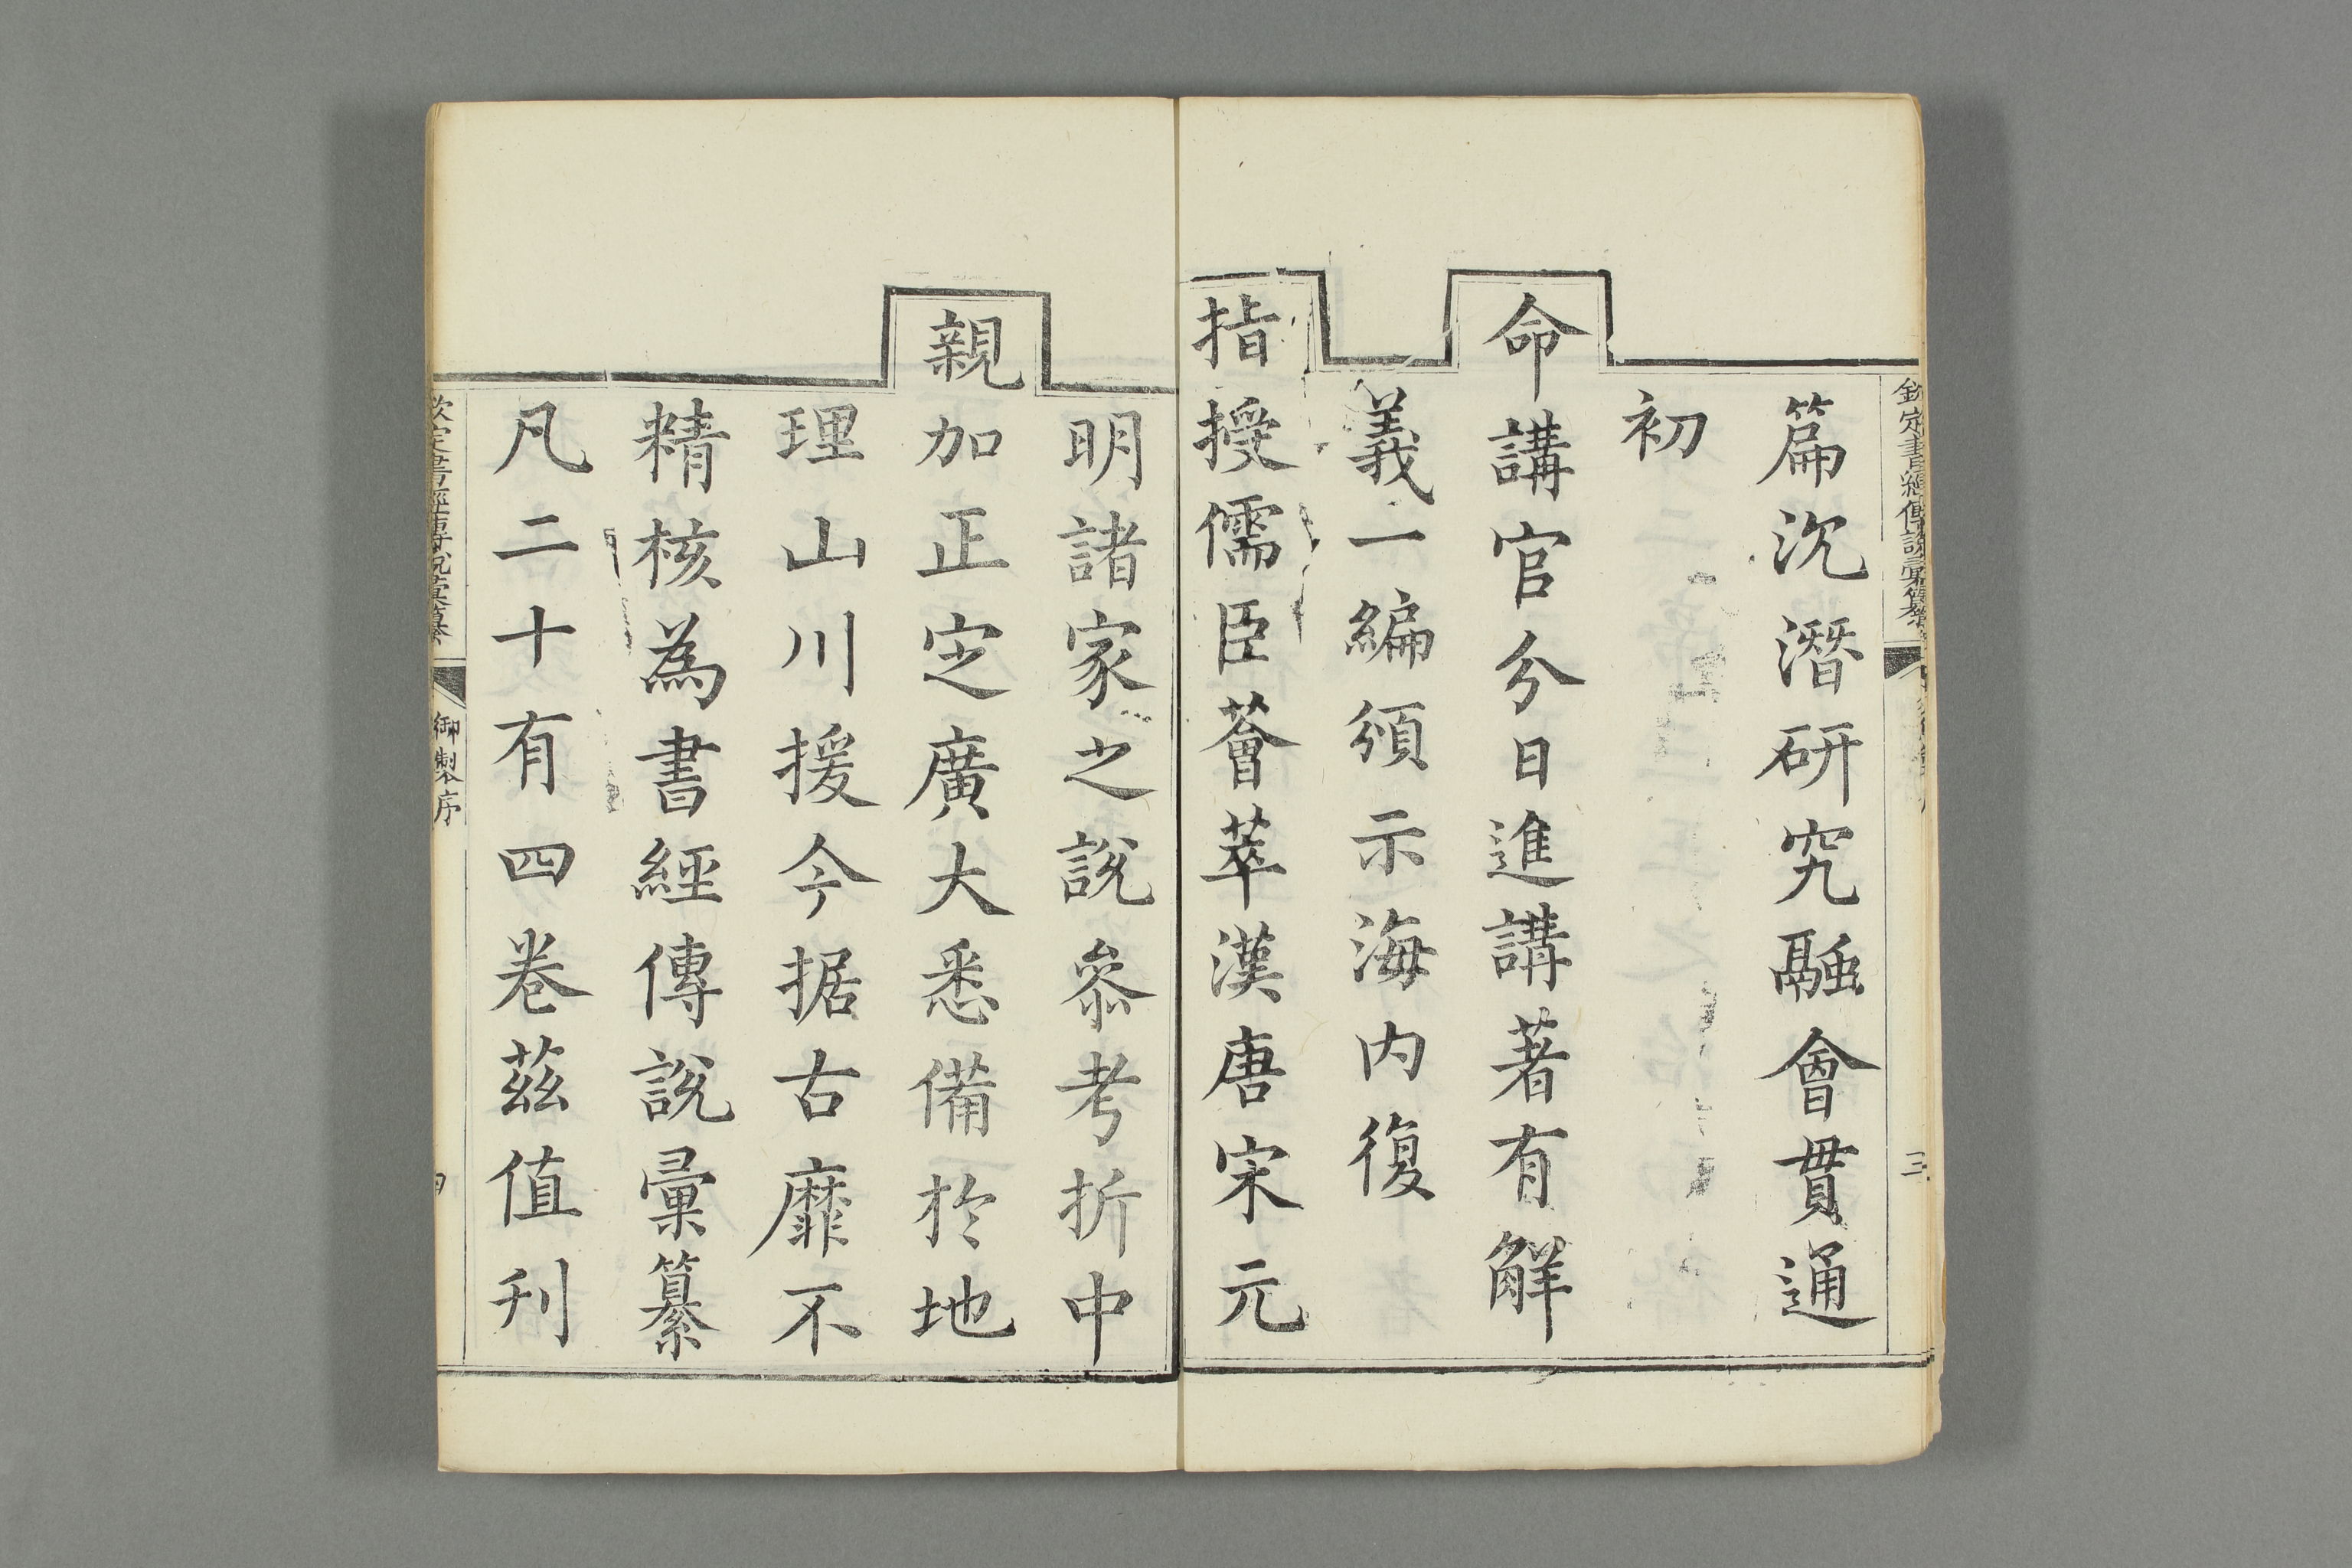 欽定書經傳說彙纂
三
篇沉潛研究融會貫通
初
命講官分日進講著有解
義一編頒示海內復
指授儒臣薈萃漢唐宋元
明諸家之說參考折中
親加正定廣大悉備於地
理山川援今据古靡不
精核為書經傳說彙纂
凡二十有四卷茲值刊
欽定書經傳說彙纂
御製序